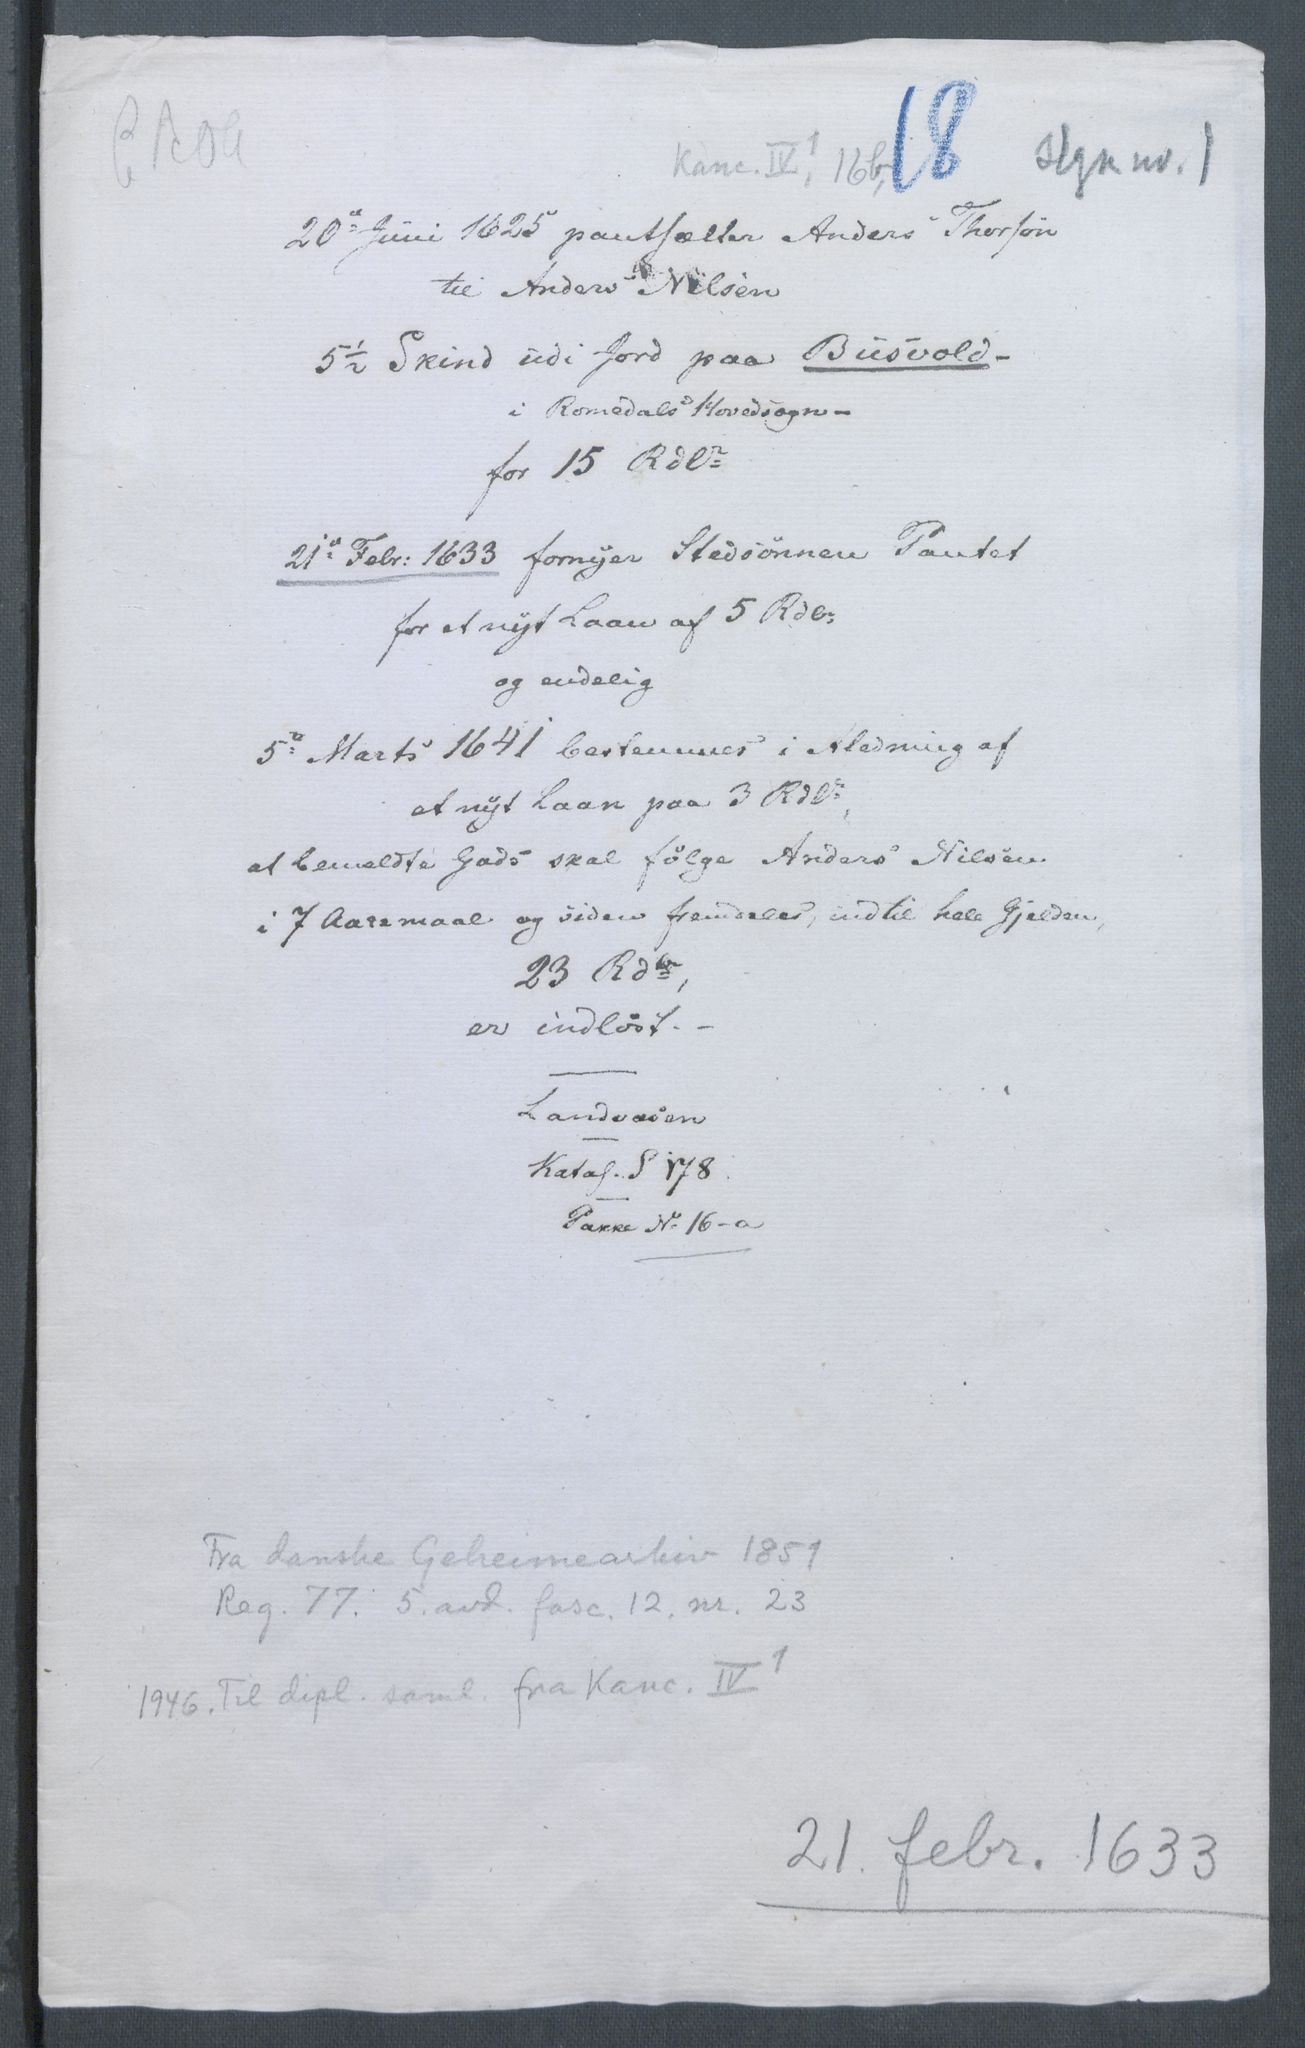 Kanc. IV,¹ 16b, 18 nr. 1
20ª Juni 1625 pantsætter Anders Thorsön
til Anders Nilsen
5½ Skind udi Jord paa Busvold -
i Romedals Hovedsogn -
for 15 Rdlr
21ª Febr: 1633 fornyer Stedsönnen Pantet
for et nyt Laan af 5 Rdlr
og endelig
5ª Marts 1641 bestemmes i Aledning af
et nyt Laan paa 3 Rdlr,
at bemeldte Gods skal fölge Anders Nilsen
i 7 Aaremaal og siden fremdeles, indtil hele Gjelden,
23 Rdlr,
er indlöst. -
Landvæsen
Katal. S 178
Pakke No 16-a
Fra danske Geheimearkiv 1851
Reg. 77. 5. avd. fasc. 12. nr. 23
1946. Til dipl. saml. fra Kanc. IV¹
21. febr. 1633